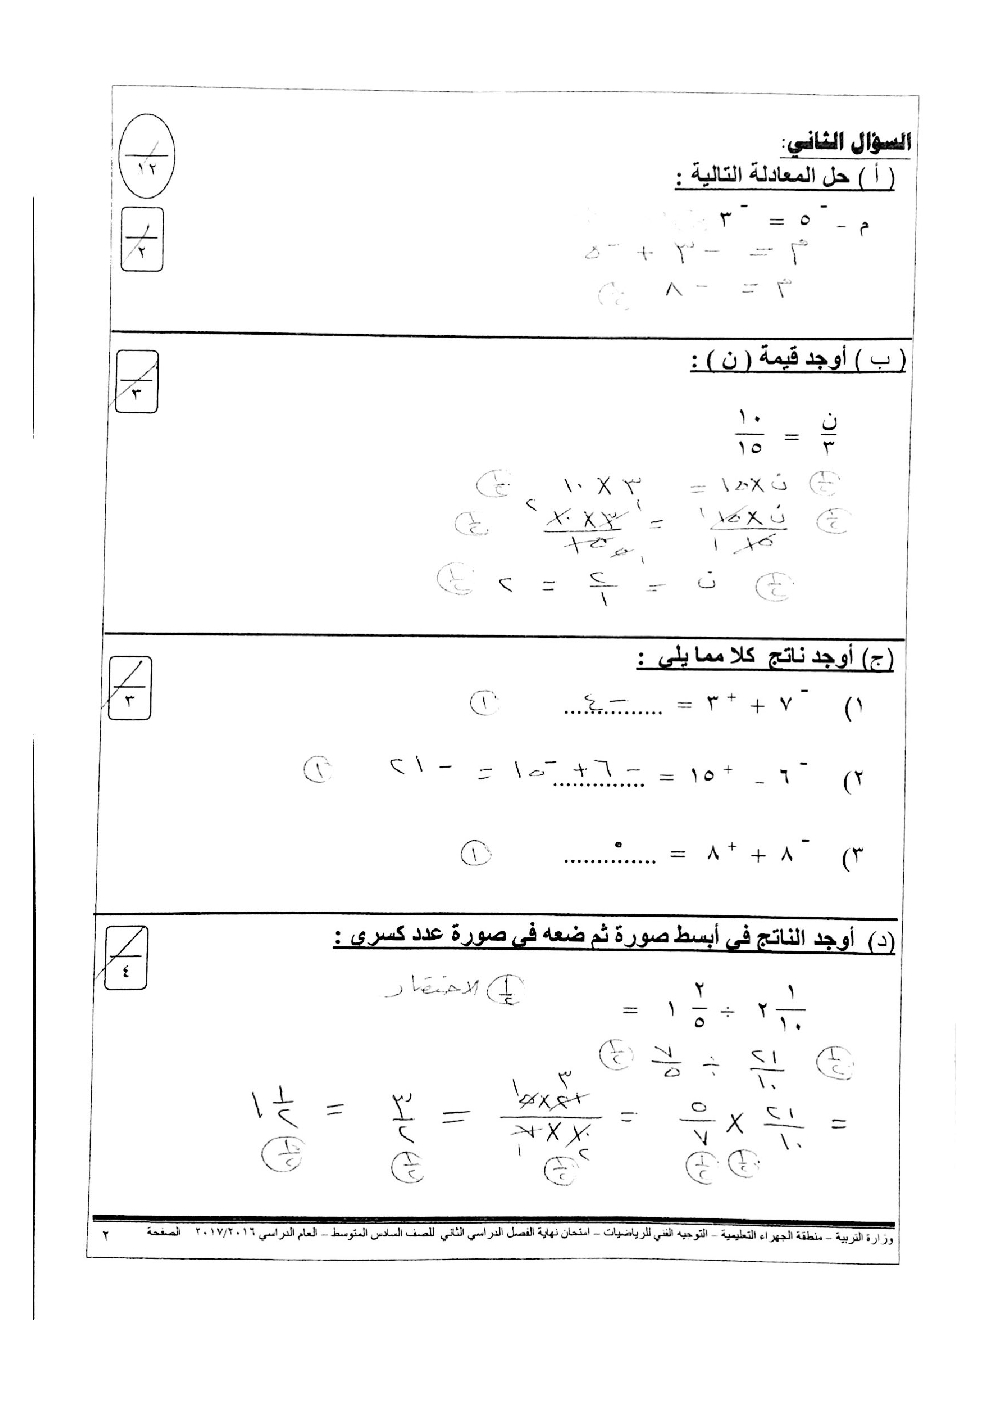 السؤال الثاني:
١٢
( أ ) حل المعادلة التالية :
٢
م - ⁻٥ = ⁻٣
م = -٣ + ⁻٥
م = -٨
( ب ) أوجد قيمة ( ن ) :
٣
ن/٣ = ١٠/١٥
ن×١٥ = ٣×١٠
ن×١٥/١٥ = ٣×١٠/١٥
ن = ٢/١ = ٢
(ج) أوجد ناتج كلا مما يلي :
٣
١) ⁻٧ + ⁺٣ = ...-٤... ①
٢) ⁻٦ - ⁺١٥ = -٦ + ⁻١٥ = -٢١ ①
٣) ⁻٨ + ⁺٨ = ...٠... ①
(د) أوجد الناتج في أبسط صورة ثم ضعه في صورة عدد كسري :
٤
٢ ١/١٠ ÷ ١ ٢/٥ =
الاختصار
٢١/١٠ ÷ ٧/٥
= ٢١/١٠ × ٥/٧ = ٢١×٥/١٠×٧ = ٣/٢ = ١ ١/٢
وزارة التربية – منطقة الجهراء التعليمية – التوجيه الفني للرياضيات – امتحان نهاية الفصل الدراسي الثاني للصف السادس المتوسط – العام الدراسي ٢٠١٧/٢٠١٦ الصفحة ٢